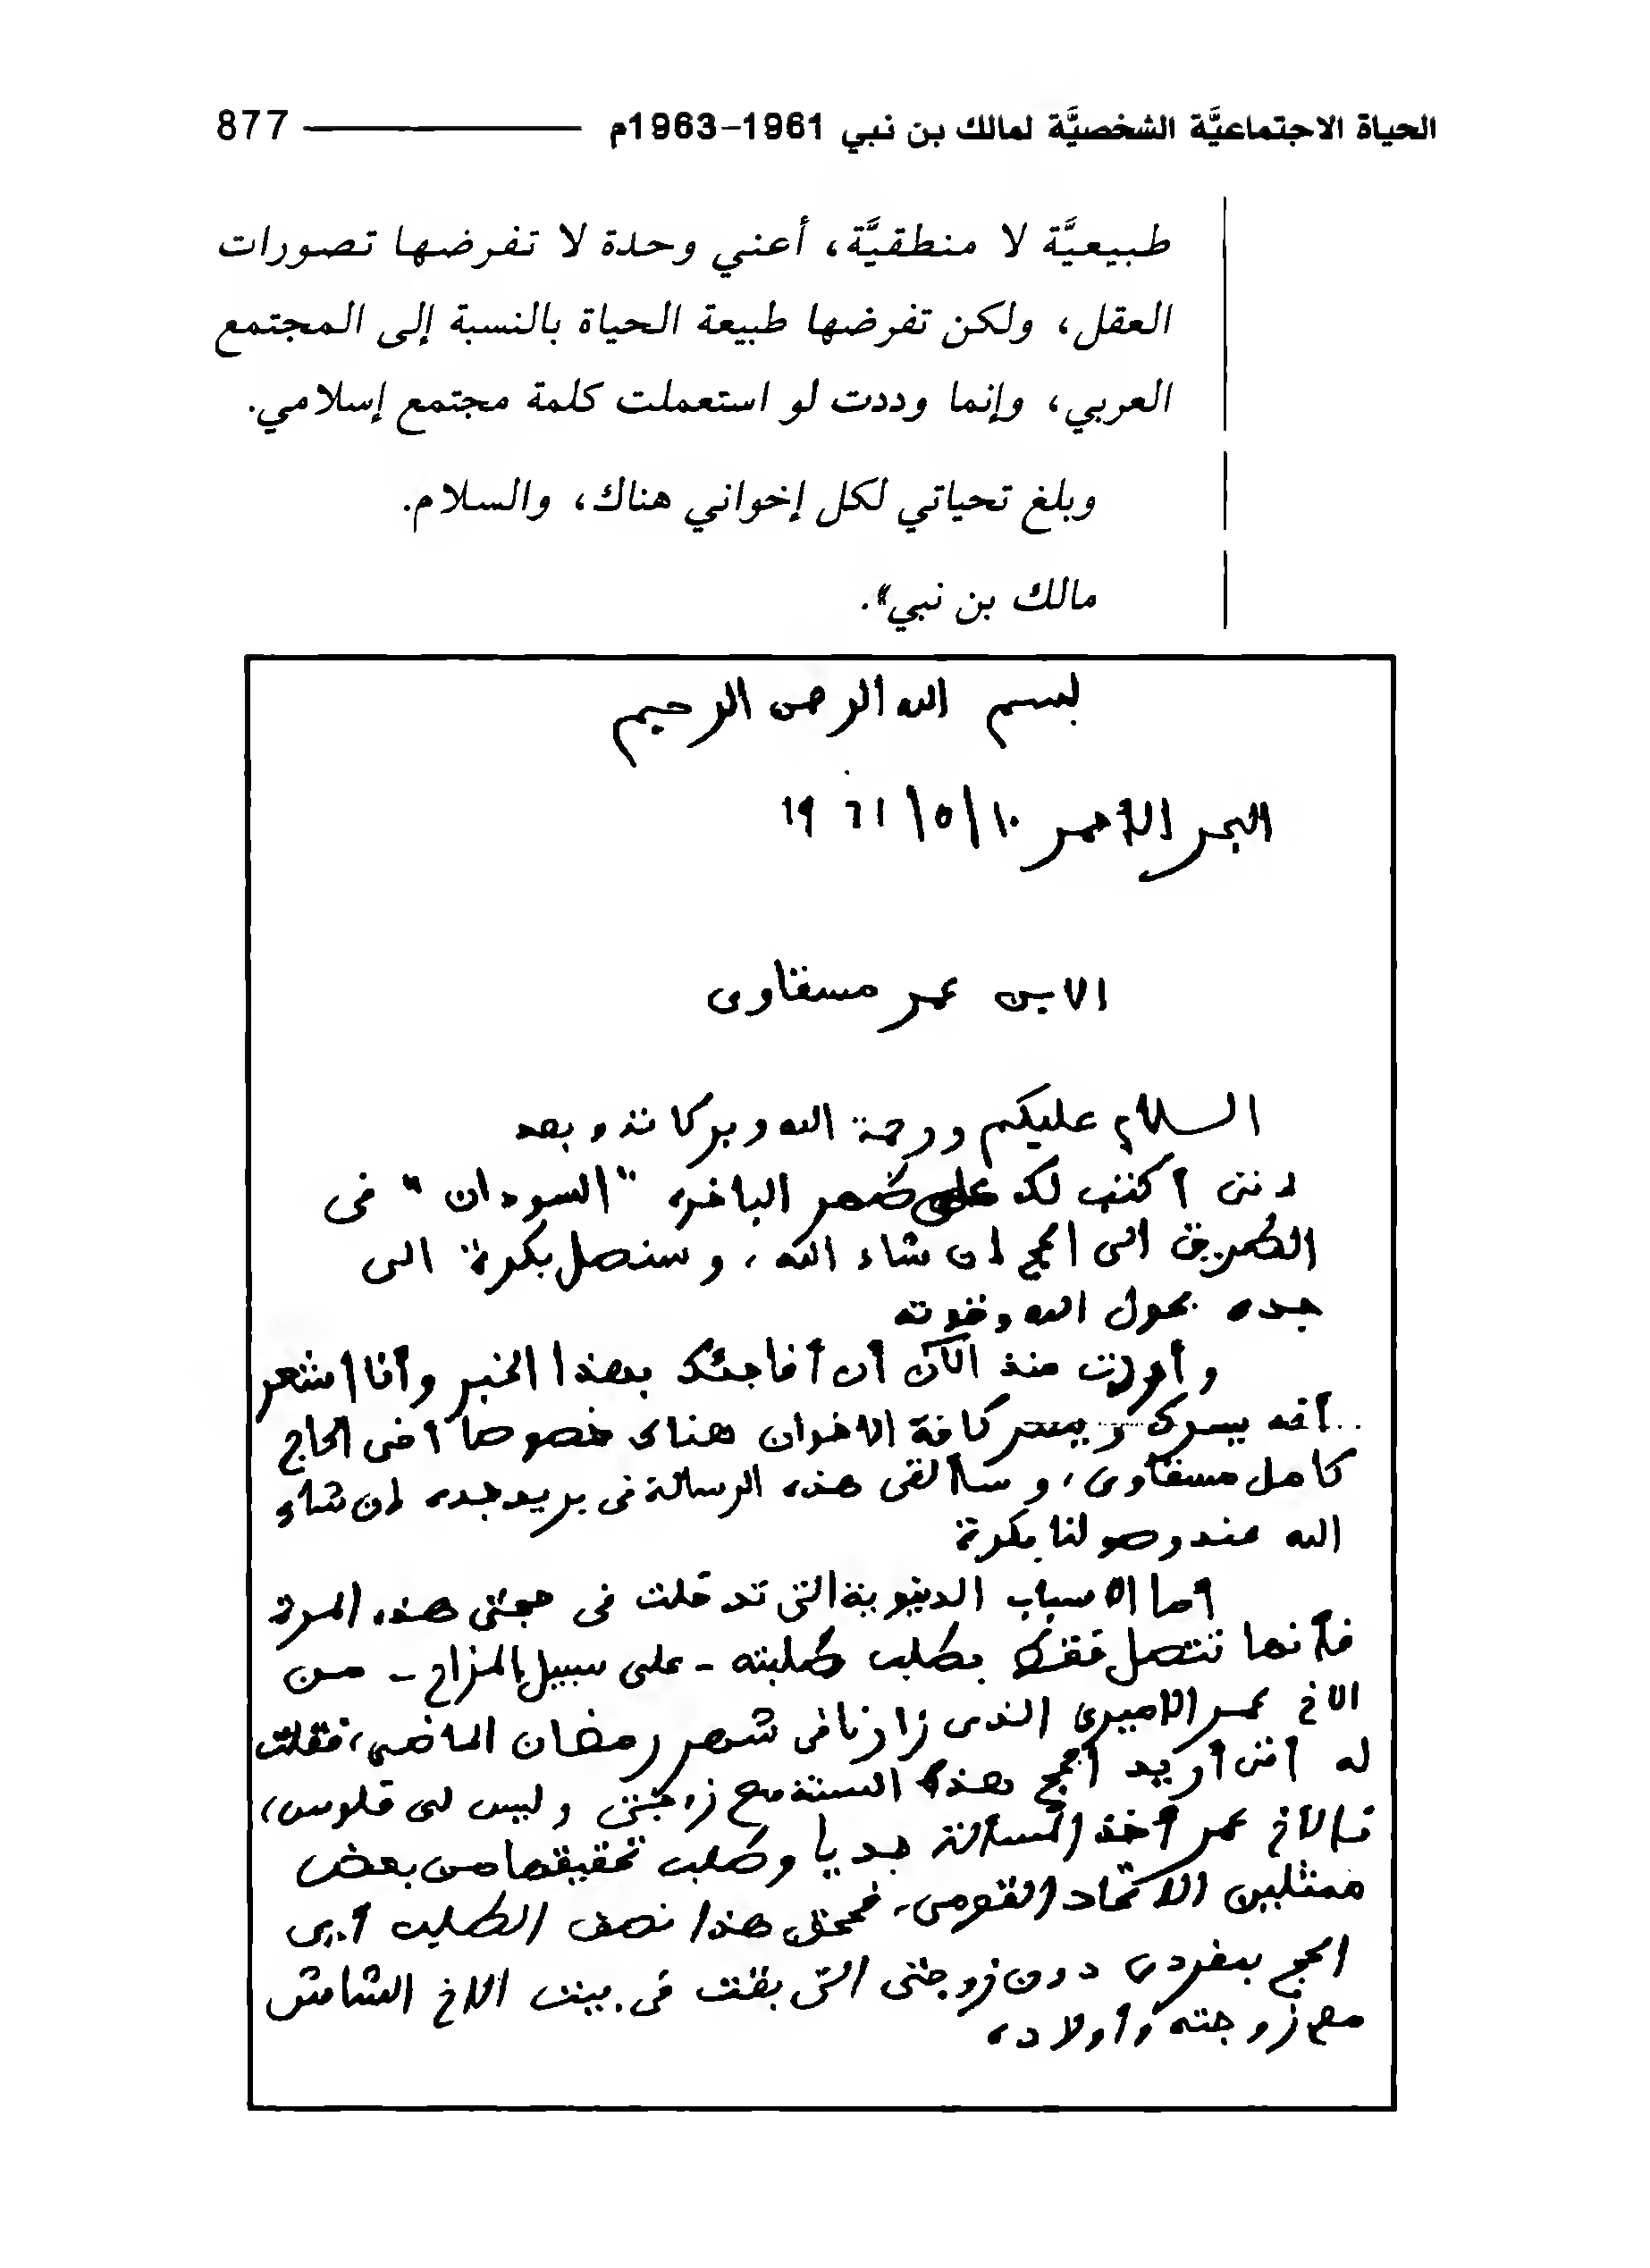 الحياة الاجتماعيَّة الشخصيَّة لمالك بن نبي 1961-1963م 877
طبيعيَّة لا منطقيَّة، أعني وحدة لا تفرضها تصورات
العقل، ولكن تفرضها طبيعة الحياة بالنسبة إلى المجتمع
العربي، وإنما وددت لو استعملت كلمة مجتمع إسلامي.
وبلغ تحياتي لكل إخواني هناك، والسلام.
مالك بن نبي».
بسم الله الرحمن الرحيم
البحر الأحمر ١٠/٥/١٩٦١
الابن عمر مسقاوى
السلام عليكم ورحمة الله وبركاته وبعد
اننى أكتب لك على ظهر الباخره "السودان" فى
الطريق الى الحج إن شاء الله، وسنصل بكرة الى
جده بحول الله وقوته
وأردت منذ الآن أن أفاجئك بهذا الخبر وأنا أشعر
أنه يسرك ويسر كافة الاخوان هناك خصوصا أخى الحاج
كامل مسقاوى، وسألقى هذه الرسالة فى بريد جده إن شاء
الله عند وصولنا بكرة
أما الأسباب الدنيوية التى تدخلت فى حجتى هذه المرة
فأنها تتصل فقط بطلب طلبته - على سبيل المزاح - من
الاخ عمر الاميرى الذى زارنا فى شهر رمضان الماضى، فقلت
له أننى أريد الحج هذه السنة مع زوجتى وليس لى فلوس،
فالأخ عمر أخذ المسألة جديا وطلب تحقيقها من بعض
ممثلين الاتحاد القومى، فحقق هذا نصف الطلب أى
الحج بمفردى دون زوجتى التى بقت فى بيت الاخ الشامتى
مع زوجته وأولاده